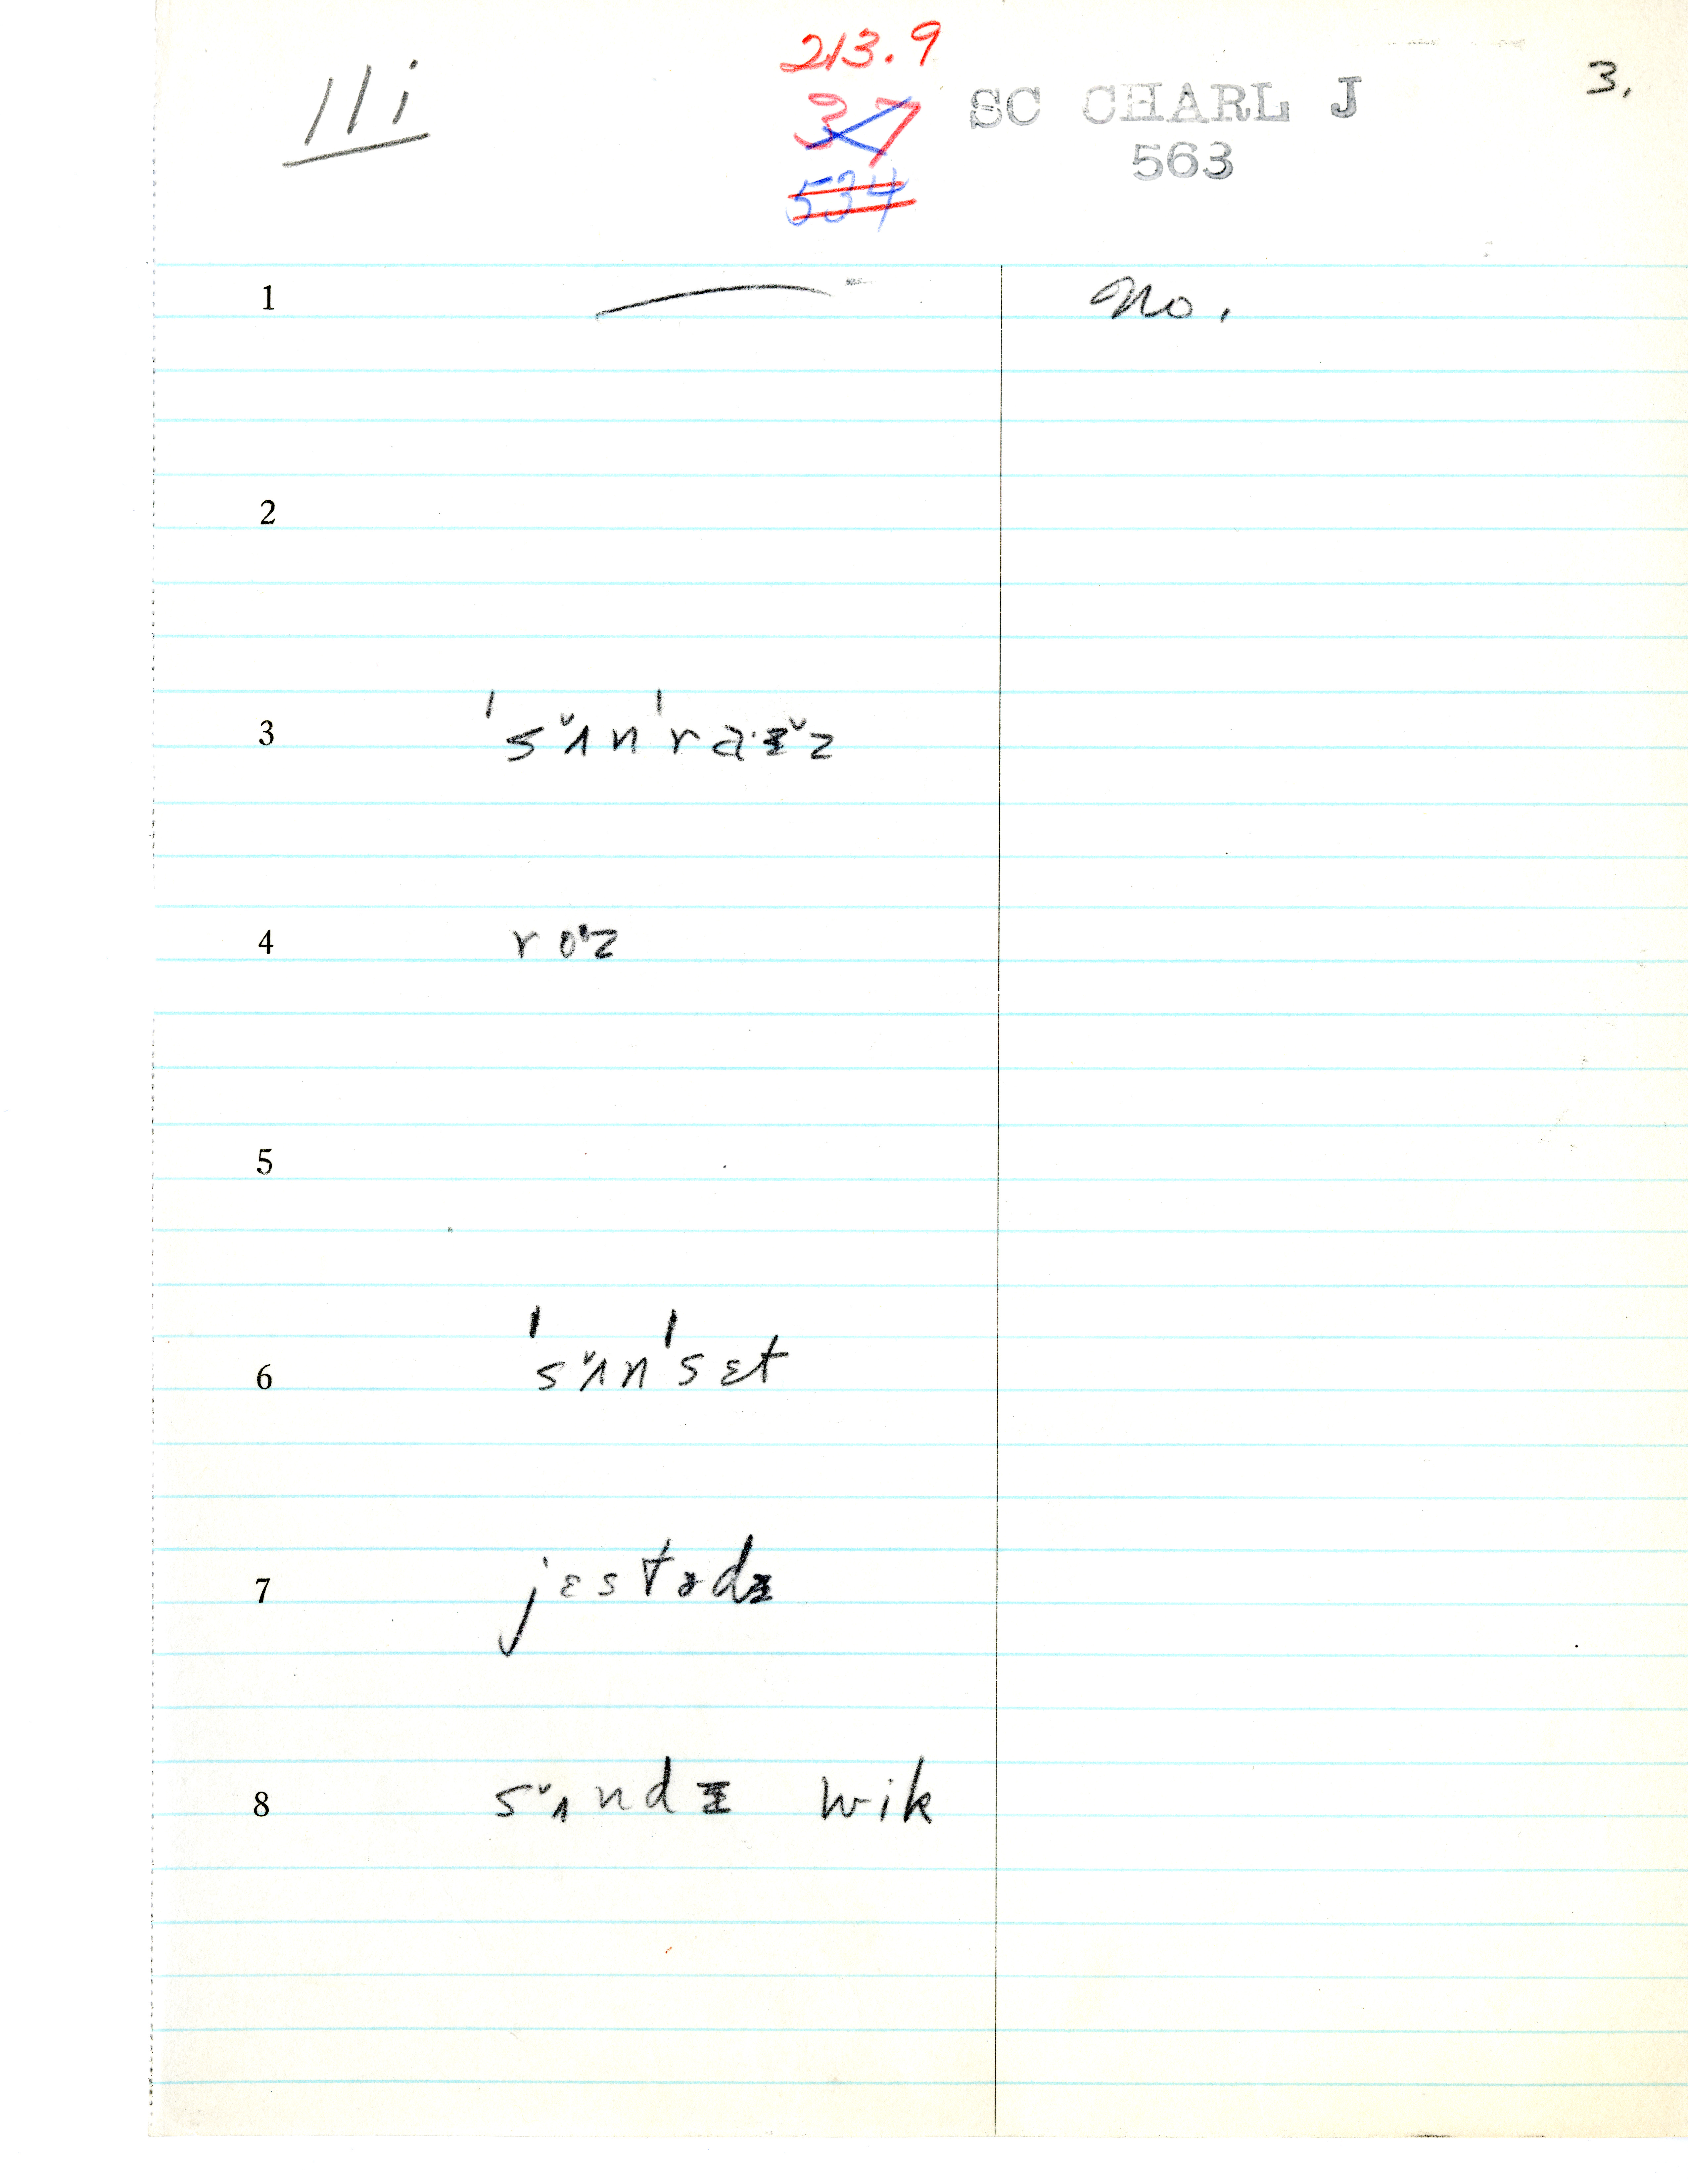 213.9
11i
37
SC CHARL J
3.
534
563
1 — no.
2
3 ˈsʌ̆nˈra·ɪ̆z
4 roˑz
5
6 ˈsʌ̆nˈsɛt
7 jɛstɚdɪ
8 sʌ̆ndɪ wik